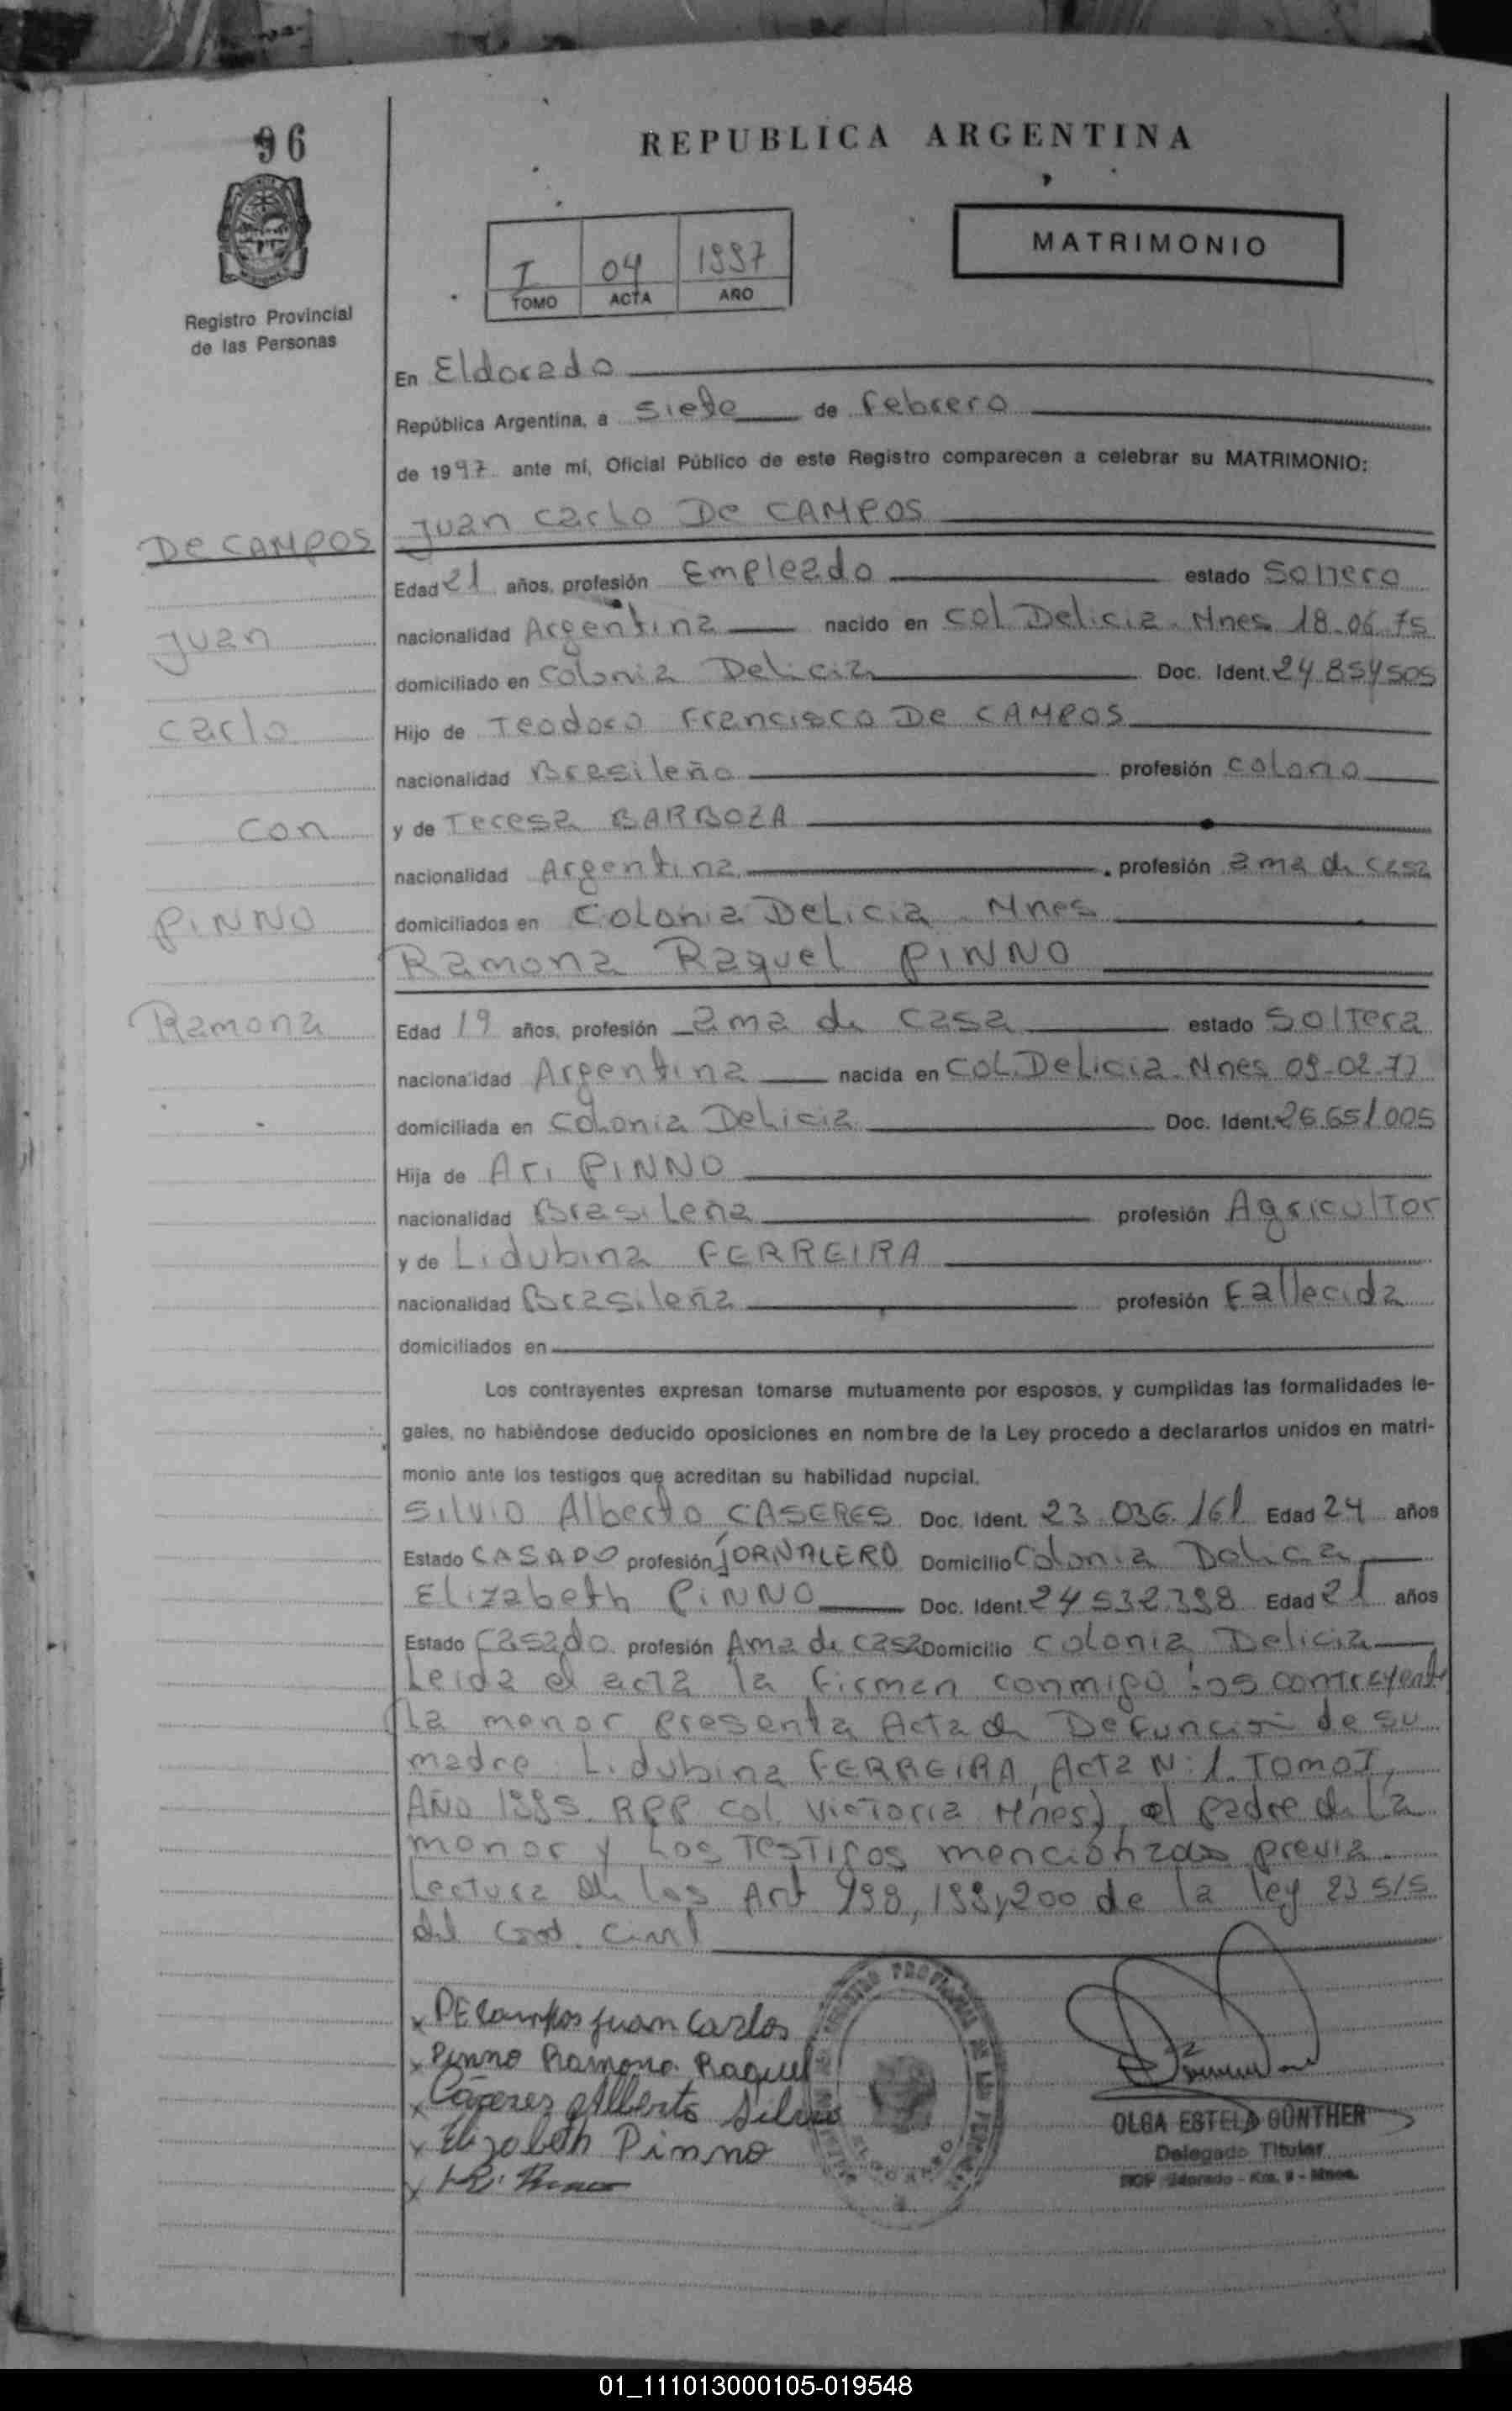 96
REPUBLICA ARGENTINA
MATRIMONIO
I 04 1997
TOMO ACTA AÑO
Registro Provincial
de las Personas
En Eldorado
República Argentina, a siete de Febrero
de 1997 ante mí, Oficial Público de este Registro comparecen a celebrar su MATRIMONIO:
De CAMPOS Juan Carlo De CAMPOS
Edad 21 años, profesión Empleado estado Soltero
Juan nacionalidad Argentina nacido en Col Delicia. Mnes 18.06.75
domiciliado en Colonia Delicia Doc. Ident. 24.854505
Carlo Hijo de Teodoro Francisco De CAMPOS
nacionalidad Brasileño profesión colono
Con y de Teresa BARBOZA
nacionalidad Argentina profesión ama de casa
PINNO domiciliados en Colonia Delicia. Mnes
Ramona Raquel PINNO
Ramona Edad 19 años, profesión ama de casa estado Soltera
nacionalidad Argentina nacida en Col. Delicia. Mnes 09-02-77
domiciliada en Colonia Delicia Doc. Ident. 26.651.005
Hija de Ari PINNO
nacionalidad Brasileña profesión Agricultor
y de Lidubina FERREIRA
nacionalidad Brasileña profesión Fallecida
domiciliados en
Los contrayentes expresan tomarse mutuamente por esposos, y cumplidas las formalidades le-
gales, no habiéndose deducido oposiciones en nombre de la Ley procedo a declararlos unidos en matri-
monio ante los testigos que acreditan su habilidad nupcial.
Silvio Alberto CASERES Doc. Ident. 23.036.161 Edad 24 años
Estado CASADO profesión JORNALERO Domicilio Colonia Delicia
Elizabeth PINNO Doc. Ident. 24532.398 Edad 21 años
Estado Casado profesión Ama de casa Domicilio Colonia Delicia
Leida el acta la firman conmigo los contrayente
(La menor presenta Acta de Defunción de su
madre Lidubina FERREIRA, Acta N:1. Tomo I,
AÑO 1995. RPP Col. Victoria Mnes), el padre de la
menor y Los Testigos mencionados previa
Lectura de los Art 198, 199, 200 de la ley 23 515
del Cod. Civil
x DE Campos Juan Carlos
x Pinno Ramona Raquel
x Cáceres Alberto Silvio
x Elizabeth Pinno
OLGA ESTELA GÜNTHER
Delegado Titular
Eldorado - Km. 9 - Mnes.
01_111013000105-019548